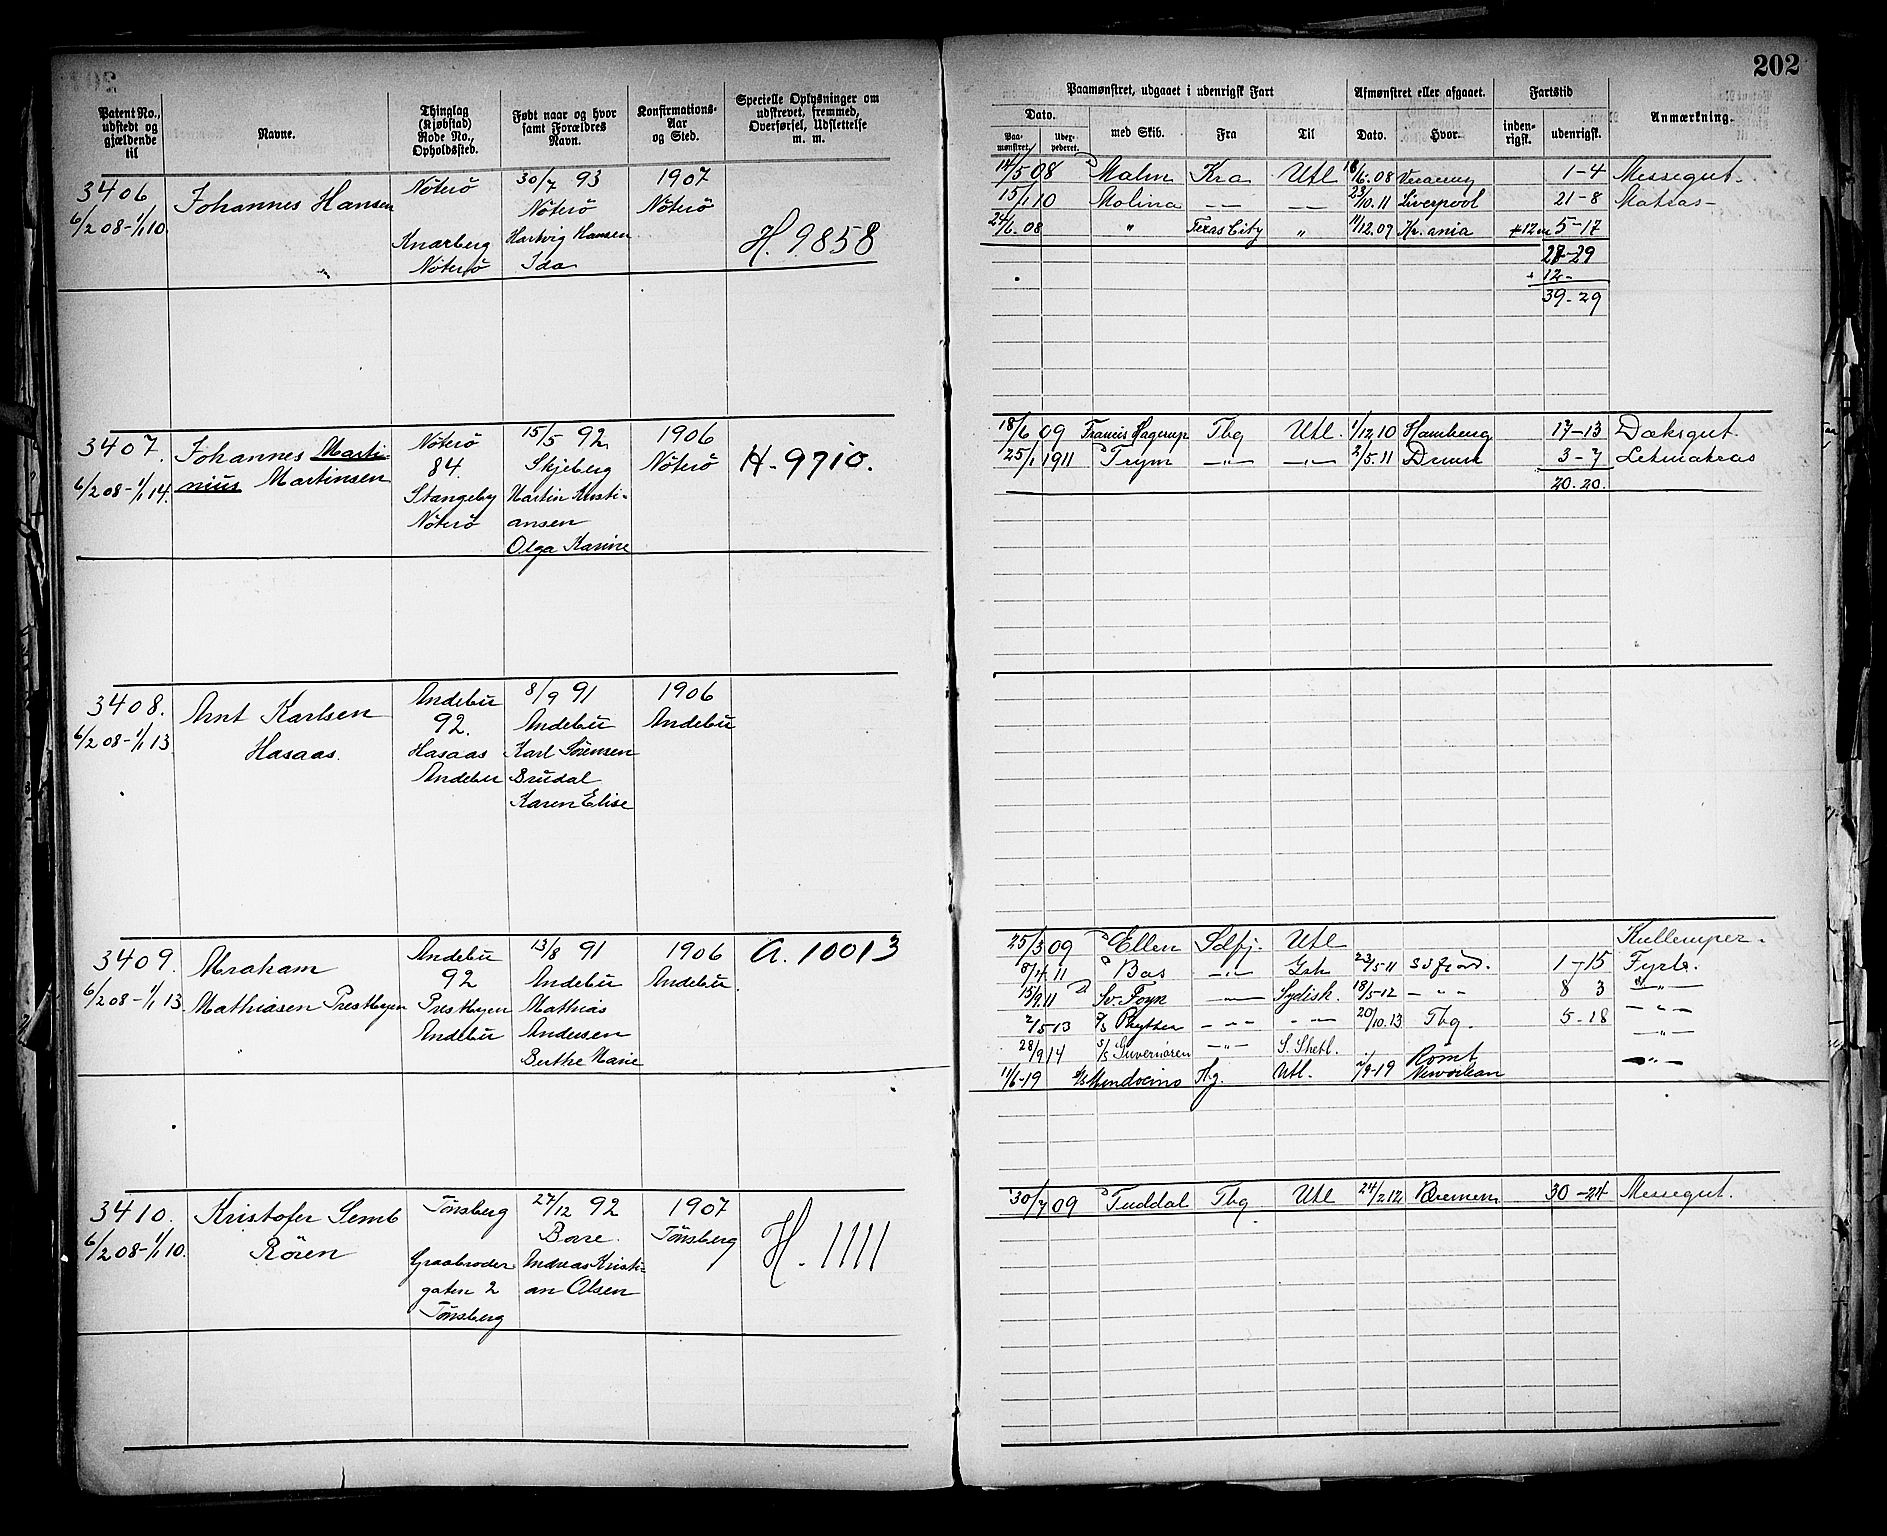 202
Patent No., udstedt og gjældende til
Navne.
Thinglag (Kjøbstad) Rode No., Opholdssted.
Født naar og hvor samt Forældres Navn.
Konfirmations-Aar og Sted.
Specielle Oplysninger om udskrevet, fremmed, Overførsel, Udslettelse m. m.
Paamønstret, udgaaet i udenrigsk Fart
Afmønstret eller afgaaet.
Fartstid
Anmærkning.
Dato.
Paa-mønstret.
med Skib.
Fra
Til
Dato.
Hvor.
inden-rigsk.
udenrigsk.
3406
6/2 08-1/1 10.
Johannes Hansen
Nøterø
Knarberg
Nøterø
30/7 93
Nøterø
Hartvig Hansen
Ida
1907
Nøterø
H. 9858
14/5 08 Malm Kra Utl 18/6.08 1-4 Messegut.
15/1 10 Molina — — 23/10.11 Liverpool 21-8 Matros-
24/6.08 " Texas City " 11/12.09 Kr.ania +12m 5-17
27-29
+ 12-
39-29
3407.
6/2 08-1/1 14.
Johannes Marti-
nius Martinsen
Nøterø
84.
Stangeby
Nøterø
15/5 92
Skjeberg
Martin Kristi-
ansen
Olga Karine
1906
Nøterø
H-9710.
18/6 09 Francis Hagerup Tbg Utl. 1/12.10 Hamburg 17-13 Dæksgut.
25/1 1911 D Trym —"— —"— 2/5.11 3-7 Letmatros
20.20.
3408.
6/2 08-1/1 13
Arnt Karlsen
Hasaas.
Andebu
92.
Hasaas
Andebu
8/9 91
Andebu
Karl Sørensen
Brudal
Karen Elise
1906
Andebu
3409.
6/2 08-1/1 13.
Abraham
Mathiasen Presthyen
Andebu
92
Presthyen
Andebu
13/8 91
Andebu
Mathias
Andersen
Berthe Marie
1906
Andebu.
A. 10013
25/3 09 D Ellen Sdfj. Utl Kullemper-
8/4 11 D Bas —"— Ish 23/5-11 Sdfjord. 1-15 Fyrb.
15/9 11 D Sv. Foyn —"— Sydish. 18/5-12 — " — 8 3 —"—
2/5-13 S/S —"— —"— 20/10.13 Tbg. 5-18 —"—
28/9 14 S/S Guvernøren —"— S. Shetl. —"—
11/6-19 S/S Mendocino Utl. /9-19 Rømt —"—
3410.
6/2 08-1/1 10.
Kristofer Semb
Røren
Tønsberg
Graabrødre
gaten 2
Tønsberg
27/12 92
Borre.
Andreas Kristi-
an Olsen
1907
Tønsberg
H. 1111
30/7 09 D Tuddal Tbg Utl 24/2 12 Bremen 30-24 Messegut.